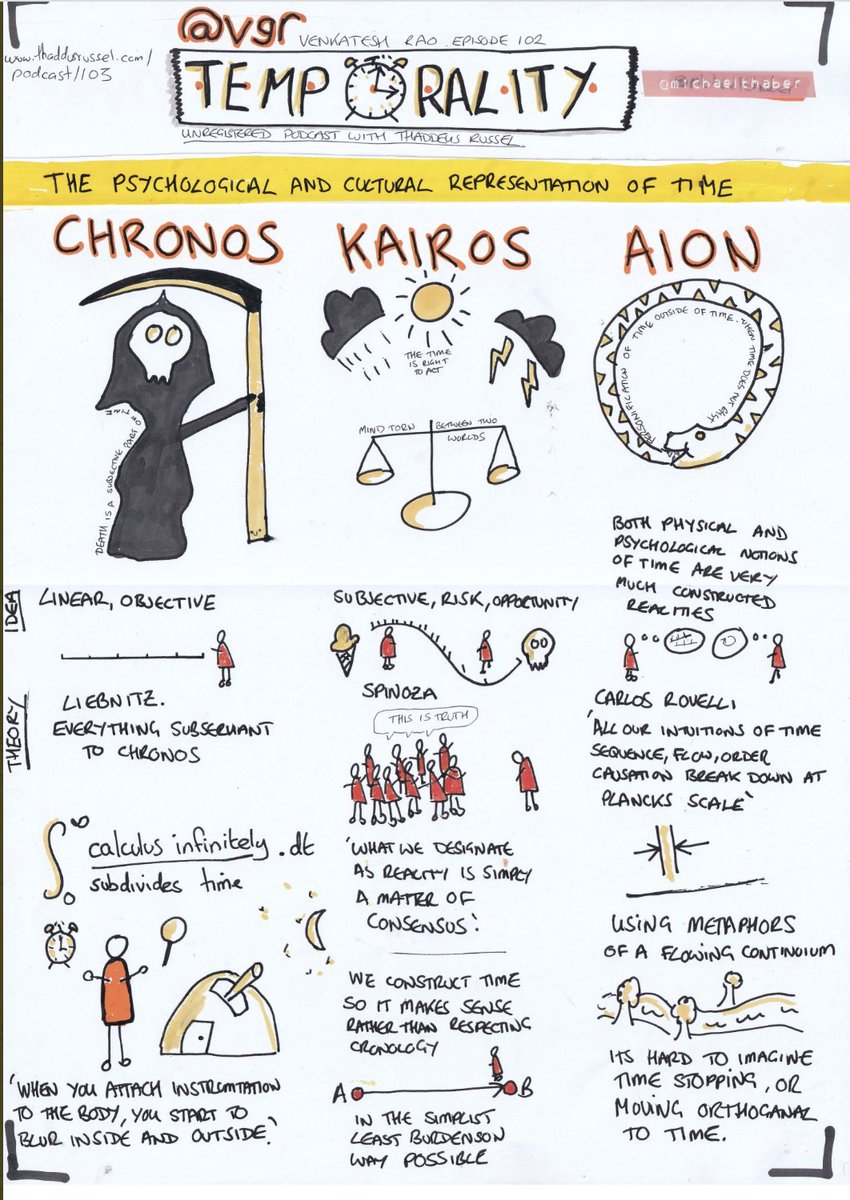 @vgr
VENKATESH RAO. EPISODE 102
www.thaddusrussel.com/
podcast/103
TEMPORALITY
@michaelthaber
UNREGISTERED PODCAST WITH THADDEUS RUSSEL
THE PSYCHOLOGICAL AND CULTURAL REPRESENTATION OF TIME
CHRONOS
DEATH IS A SUBJECTIVE PART OF
TIME
KAIROS
THE TIME
IS RIGHT
TO ACT
MIND TORN BETWEEN TWO
WORLDS
AION
PERSONIFICATION OF TIME OUTSIDE OF TIME. WHEN TIME DOES NOT EXIST
BOTH PHYSICAL AND
PSYCHOLOGICAL NOTIONS
OF TIME ARE VERY
MUCH CONSTRUCTED
REALITIES
IDEA
LINEAR, OBJECTIVE
SUBJECTIVE, RISK, OPPORTUNITY
THEORY
LIEBNITZ.
EVERYTHING SUBSERVIANT
TO CHRONOS
∫ calculus infinitely .dt
subdivides time
'WHEN YOU ATTACH INSTRUMTATION
TO THE BODY, YOU START TO
BLUR INSIDE AND OUTSIDE.'
SPINOZA
THIS IS TRUTH
'WHAT WE DESIGNATE
AS REALITY IS SIMPLY
A MATTER OF
CONSENSUS'.
WE CONSTRUCT TIME
SO IT MAKES SENSE
RATHER THAN RESPECTING
CRONOLOGY
A B
IN THE SIMPLIST
LEAST BURDENSON
WAY POSSIBLE
CARLOS ROVELLI
'ALL OUR INTUITIONS OF TIME
SEQUENCE, FLOW, ORDER
CAUSATION BREAK DOWN AT
PLANCKS SCALE'
USING METAPHORS
OF A FLOWING CONTINUIUM
ITS HARD TO IMAGINE
TIME STOPPING, OR
MOVING ORTHOGANAL
TO TIME.